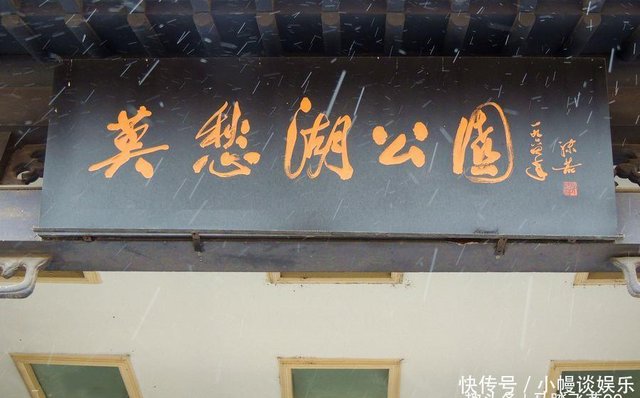 莫愁湖公园
一九六四年
沫若
快传号 / 小幔谈娱乐